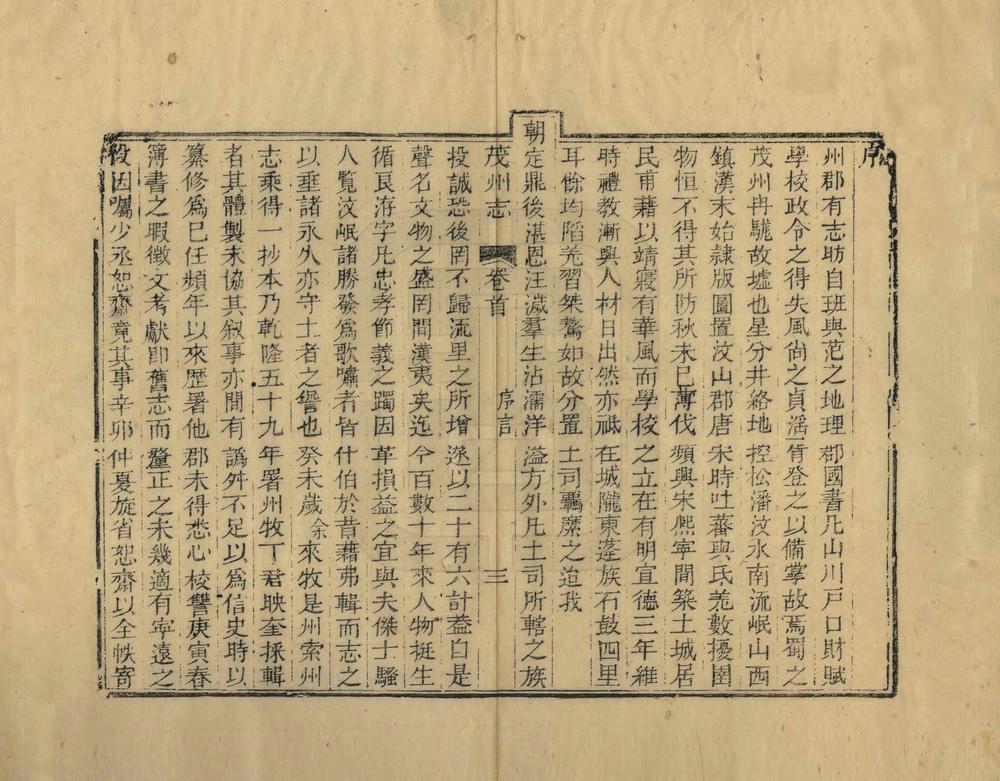 序
州郡有志昉自班與范之地理郡國書凡山川戸口財賦
學校政令之得失風尚之貞滛胥登之以備掌故焉蜀之
茂州冉駹故墟也星分井絡地控松潘汶水南流岷山西
鎮漢末始隷版圖置汶山郡唐宋時吐蕃與氐羌數擾圉
物恒不得其所防秋未已薄伐頻興宋熙寜間築土城居
民甫藉以靖寢有華風而學校之立在有明宣德三年維
時禮教漸興人材日出然亦祗在城隴東蓬族石鼓四里
耳餘均陷羌習桀驁如故分置土司羈縻之迨我
朝定鼎後湛恩汪濊羣生沾濡洋溢方外凡土司所轄之族
茂州志 卷首 序言 三
投誠恐後罔不歸流里之所增遂以二十有六計葢曰是
聲名文物之盛罔間漢夷矣迄今百數十年來人物挺生
循良洊字凡忠孝節義之躅因革損益之宜與夫傑士騷
人覧汶岷諸勝發爲歌嘯者皆什伯於昔藉弗輯而志之
以垂諸永久亦守土者之儧也癸未歲余來牧是州索州
志乘得一抄本乃乾隆五十九年署州牧丁君映奎採輯
者其體製未協其叙事亦間有譌舛不足以爲信史時以
纂修爲已任頻年以來歷署他郡未得悉心校讐庚寅春
簿書之暇徵文考獻即舊志而釐正之未幾適有寜遠之
役因囑少丞恕齋竟其事辛卯仲夏旋省恕齋以全帙寄